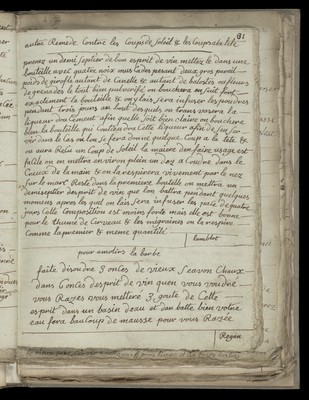 81
autre Remede Contre les Coups de Soleil & les Coups a la tête
prenez un demi septier de bon esprit de vin mettez le dans une
bouteille avec quatre noix muscades pesant deux gros pareil
poids de girofle autant de Canelle & autant de balostes ou fleurs
de grenades le tout bien pulverisé on bouchera on suite fort
exactement la bouteille & on y laissera infuser les poudres
pendant trois jours au bout desquels on transversera la
liqueur doucement afin quelle soit bien claire on bouchera
bien la bouteille qui Contiendra cette liqueur afin de sen ser
vir dans le cas où l'on se sera donné quelque Coup a la tête &
ou aura Reçu un Coup de Soleil la maniere den faire usage est
facile on en mettra environ plein un dez a Coudre dans le
Creux de la main & on la respirera vivement par le nez
Sur le marc Resté dans la premiere bouteille on mettra un
demi septier desprit de vin que l'on battra pendant quelques
momens apres les quel on laissera infuser les pais de quatre
jours Cette Composition est moins forte mais elle est bonne
pour le Rhume de Cerveau & les migraines on la respire
Comme la premiere & meme quantité
pour amolir la barbe
faite disoudre 3 onces de vieux Seavon Chaux
dans 6 onces desprit de vin quen vous voudré
vous Razes vous metteré 3 goute de Cette
esprit dans un basin deau et dan batte bien votre
eau fera baucoup de mausse pour vous Razée
Rogan